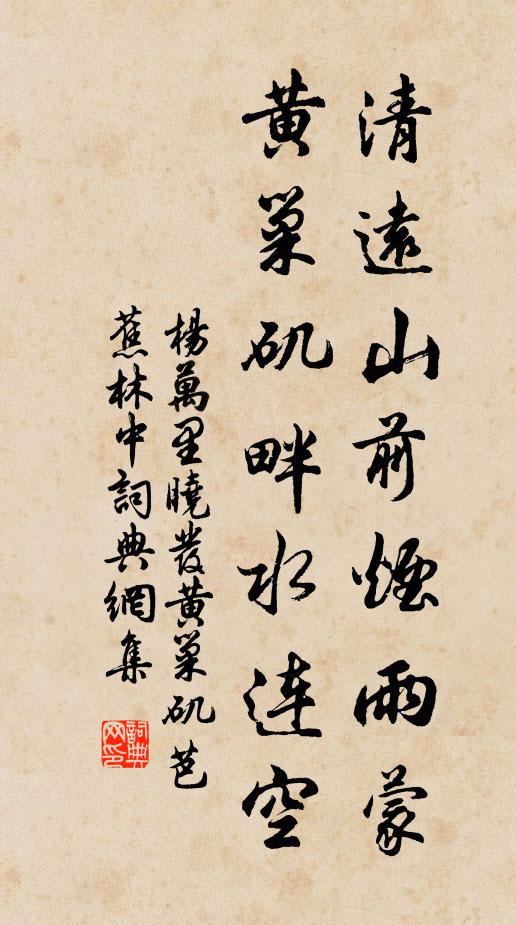 清遠山前煙雨蒙
黄巢矶畔水連空
楊萬里曉發黄巢矶芭
蕉林中詞典網集
詞典网印